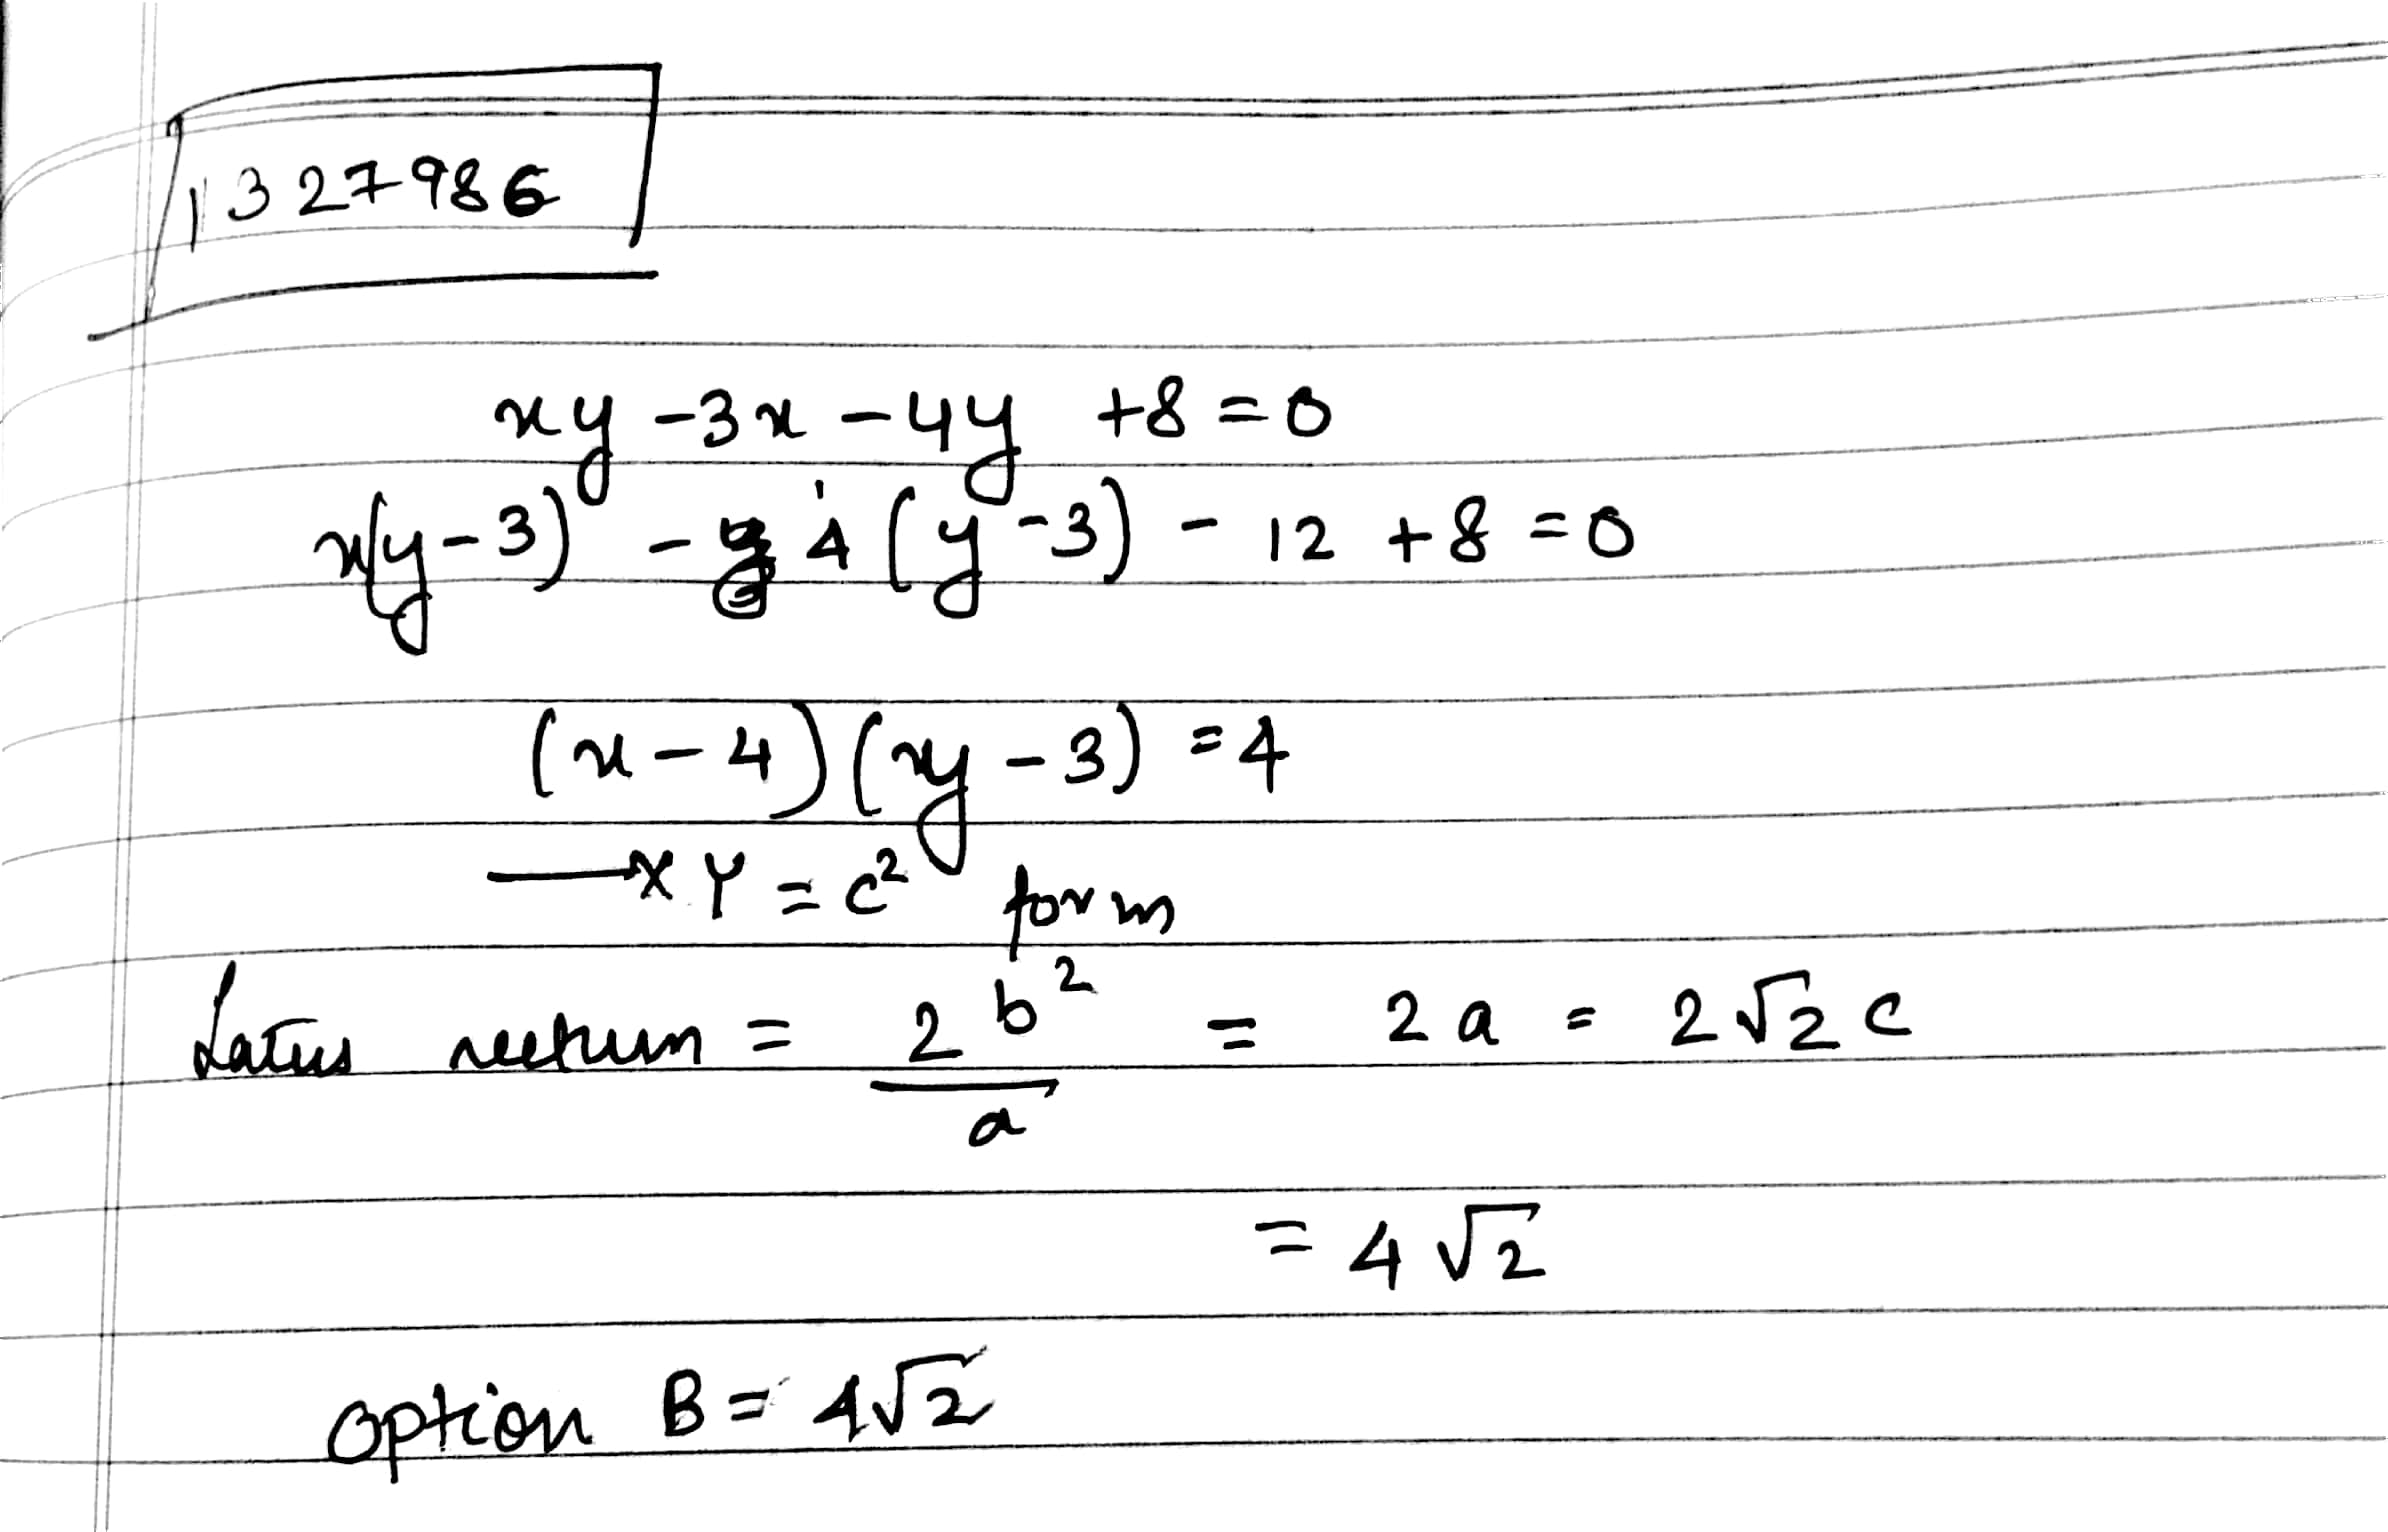 1327986
xy -3x -4y +8 =0
x(y-3) - 4 (y-3) - 12 +8 =0
(x-4)(y-3) =4
→ X Y = c² form
Latus rectum = 2b²/a = 2a = 2√2 c
= 4√2
option B = 4√2